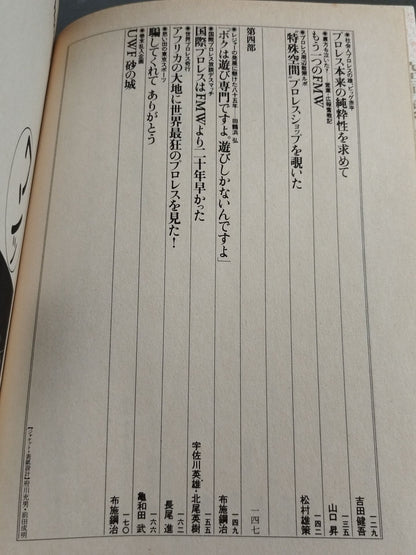 ●社会人プロレスの雄、ビッグ原辛
プロレス本来の純粋性を求めて
吉田健吾
一二九
もう一つのFMW
山口 昇
一三五
●プロレス周辺散策ルポ
“特殊空間”プロレスショップを覗いた
松村雄策
一四二
第四部
一四七
●レジャーの発展に懸けた八十五年──田鶴浜 弘
「ボクは遊び専門ですよ。遊びしかないんですよ」
布施鋼治
一四九
●国際プロレス放談デスマッチ
国際プロレスはFMWより二十年早かった
宇佐川英雄
北尾英樹
一五五
●世界プロレス奇行
アフリカの大地に世界最狂のプロレスを見た!
長尾 進
一六二
●思い出の東京スポーツ
騙してくれて、ありがとう
亀和田 武
一六六
UWF砂の城
布施鋼治
一七〇